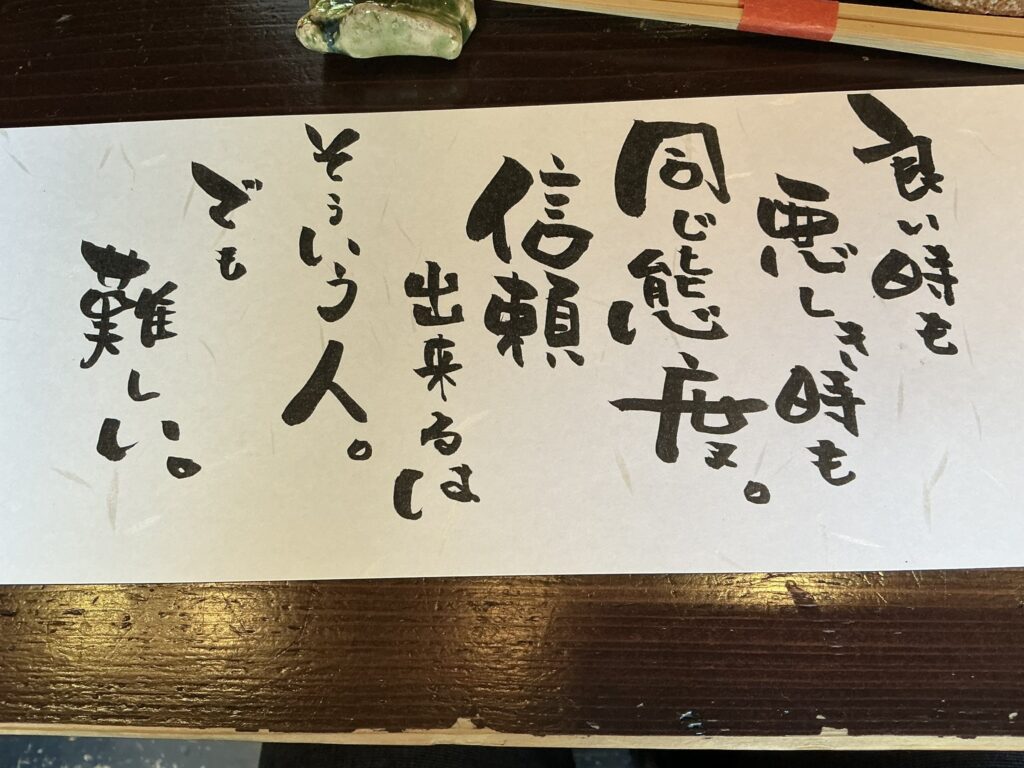 良い時も
悪しき時も
同じ態度。
信頼
出来るは
そういう人。
でも
難しい。